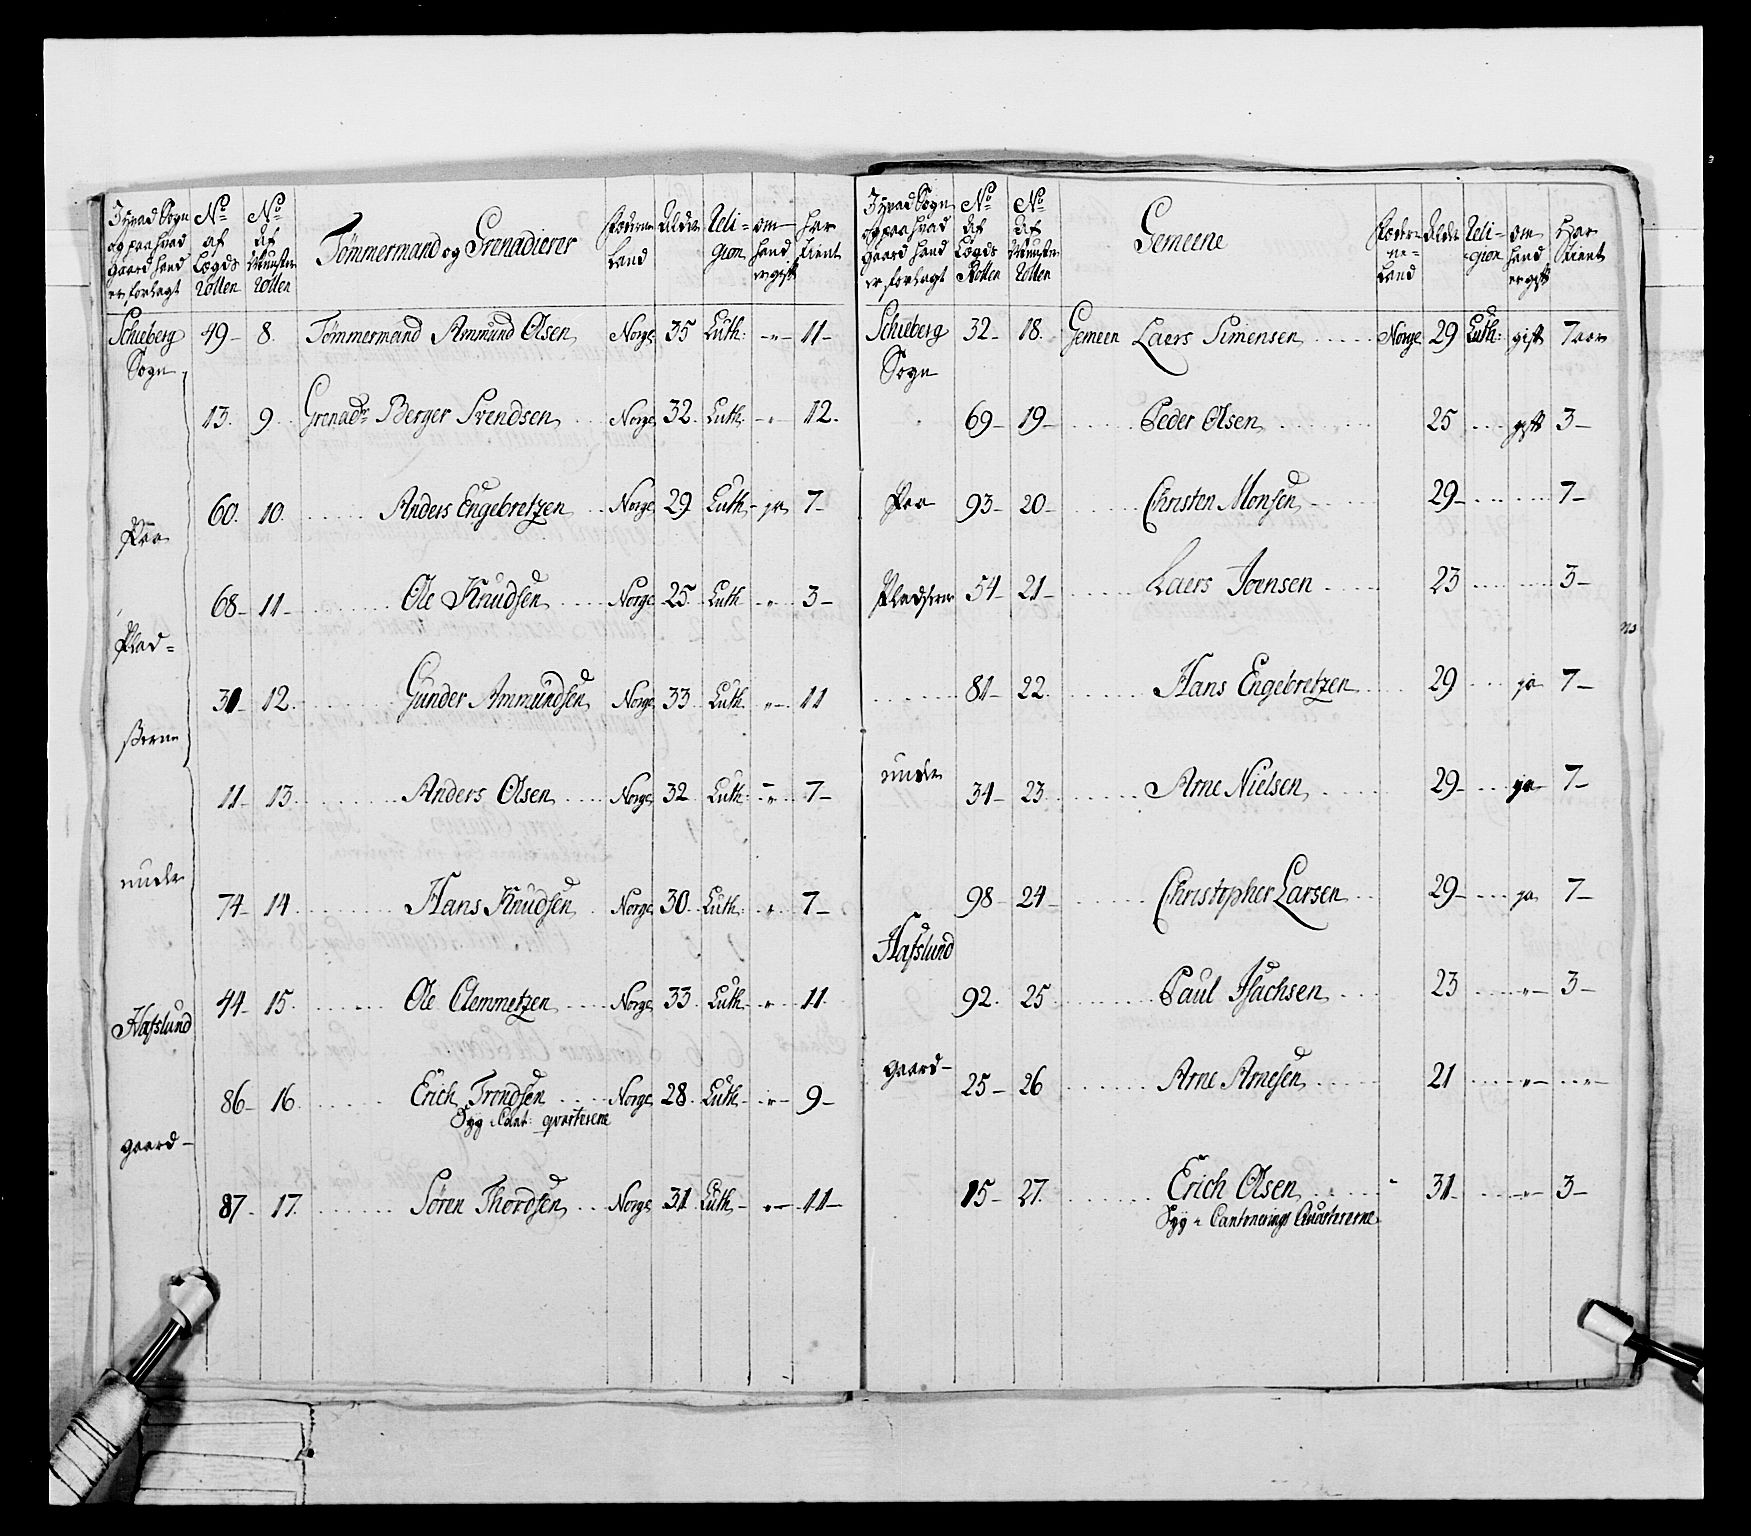 I hvad Sogn og paa hvad Gaard hand er forlagt | No af Lægds Rollen | No af Munster Rollen | Tømmermand og Grenadierer | Fæderne Land | Alder | Religion | om hand er gift | har tient
Schieberg Sogn 49 - 8. Tømmermand Ammund Olsen Norge 35 Luth: -"- 11 -
13. 9. Grenadr Berger Svendsen Norge 32 Luth: -"- 12.
60. 10. Anders Engebretzen Norge 29 Luth - ja 7 -
Paa
68 - 11 - Ole Knudsen Norge 25 Luth -"- 3 -
Plad=
31 - 12. Gunder Ammundsen Norge 33 Luth -"- 11
sserne
11 - 13. Anders Olsen Norge 32 Luth: -"- 7 -
under
74 - 14 Hans Knudsen Norge 30 Luth: -"- 7 -
44 - 15. Ole Clemmetzen Norge 33 Luth -"- 11.
Hafslund
86 - 16 Erich Trondsen Norge 28 Luth - -"- 9 -
Syg i Cant: qvarterene
gaard -
87 - 17. Søren Thordsen Norge 31 Luth - -"- 11 -
I hvad Sogn og paa hvad Gaard hand er forlagt | No Af Lægds Rollen | No Af Munster Rollen | Gemeene | Fæderne Land | Alder | Religion | om hand er gift | Har Tient
Schieberg Sogn 32 - 18. Gemeen Laers Simensen Norge 29 Luth: gift 7 aar
69 - 19 - Peder Olsen 25 gift 3 -
Paa 93 - 20 - Christen Monsen 29 - 7 -
Pladserne 54 - 21 - Laers Joensen 23 3 -
81 - 22. Hans Engebretzen 29 ja 7 -
under
34 - 23 Arne Nielsen 29 - ja 7 -
98 - 24 - Christopher Larsen 29 - ja 7 -
Hafslund
92. 25. Paul Isachsen 23 -"- 3 -
gaard -
25 - 26 Arne Arnesen 21 -"- -"-
15 - 27. Erich Olsen 31 - -"- 3 -
Syg i Cantonerings Quartererne